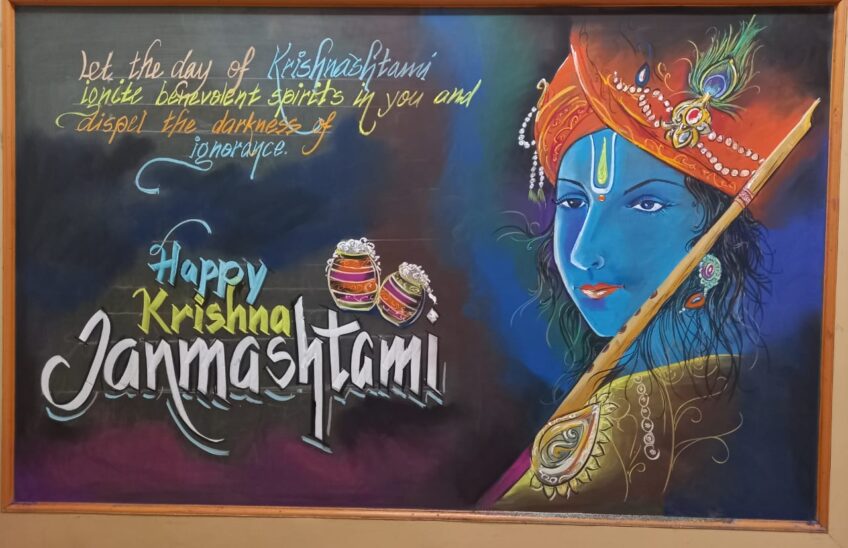 Let the day of Krishnashtami
ignite benevolent spirits in you and
dispel the darkness of
ignorance.
Happy
Krishna
Janmashtami